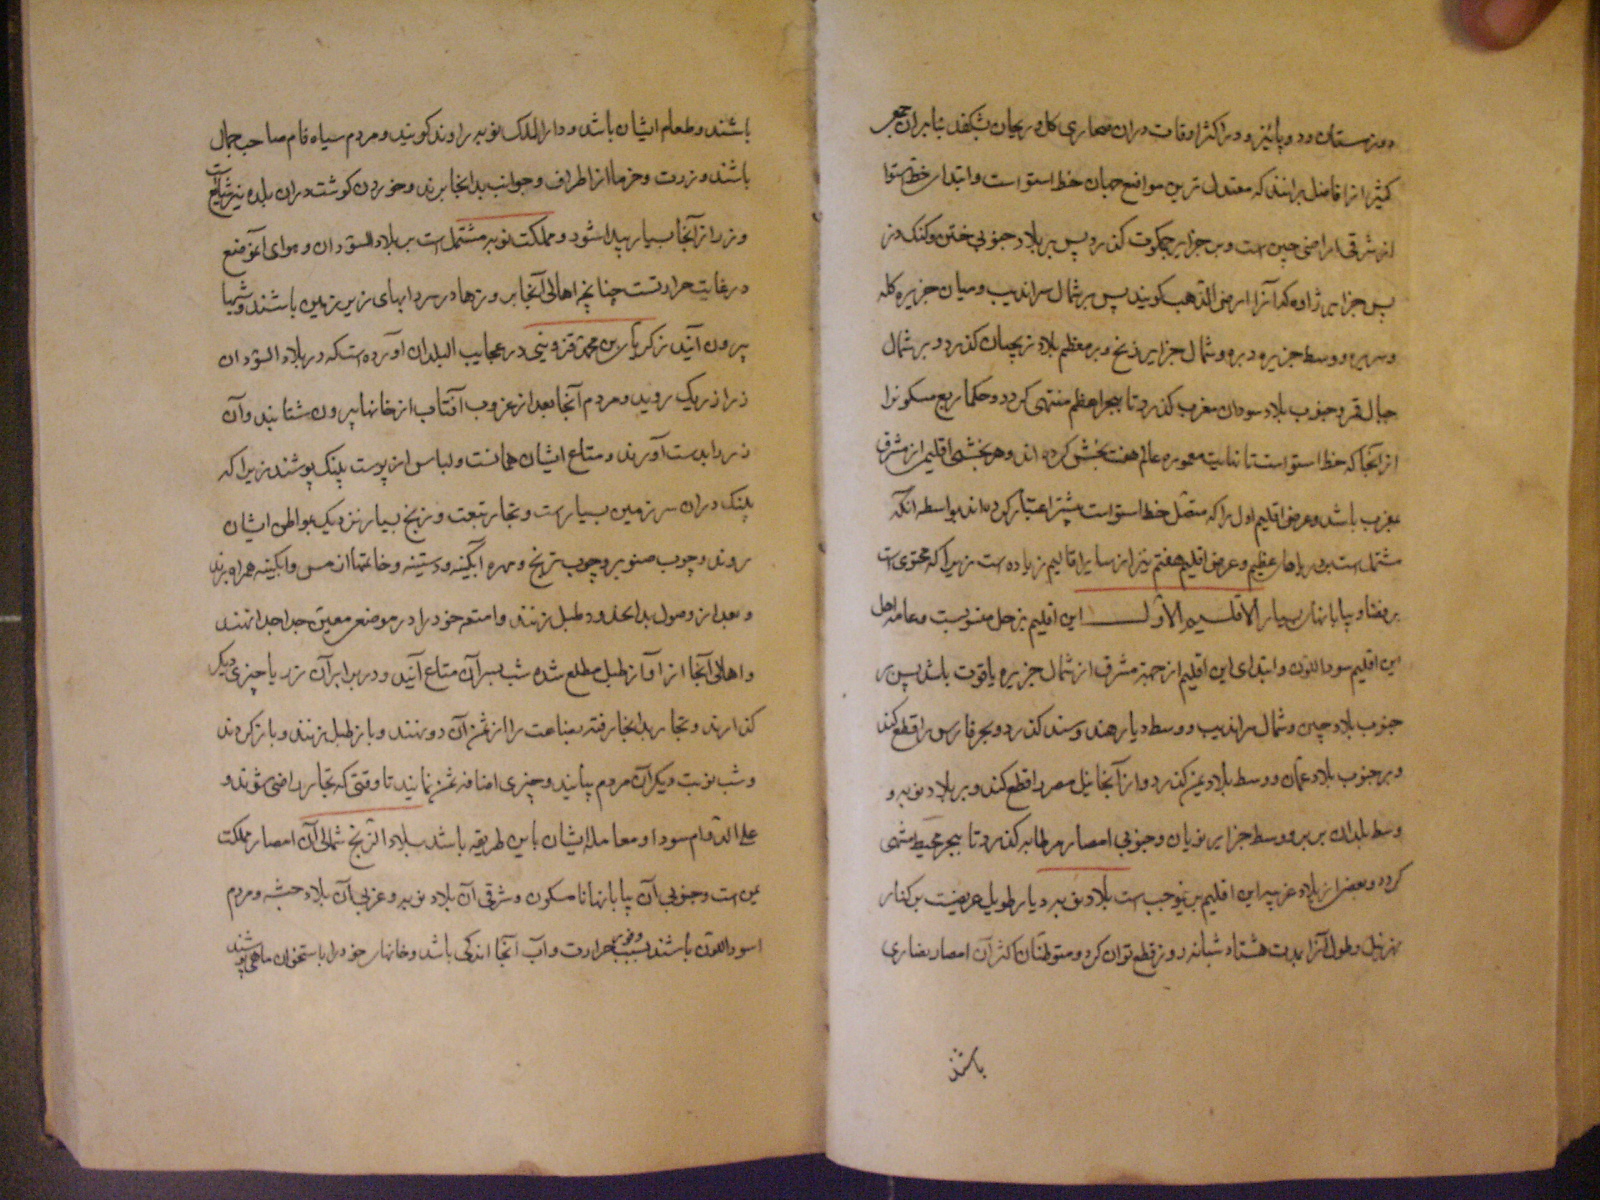 دو زمستان و دو پائیز و در اکثر اوقات در ان صحاری کل و ریحان بشکفد بنابران جمعی
کثیر از افاضل برانند که معتدل ترین مواضع جهان خط استوا است و ابتدا خط استوا
از شرقی اراضی چین است و بر جزایر جمکوت کذرد پس بر بلاد جنوبی ختن و کنک دز
پس جزایر زاوه که آنرا ارض الذهب کویند پس بر شمال سراندیب و میان جزیره کله
و سریره و وسط جزیره دبره و شمال جزایر زنج و بر معظم بلاد زنجیان کذرد و بر شمال
جبال قمر و جنوب بلاد سودان مغرب کذرد تا ببحر اعظم منتهی کردد و حکما ربع مسکونرا
از آنجا که خط استوا است تا نهایت معموره عالم هفت بخش کرده اند و هر بخشی اقلیمی از مشرق
بمغرب باشد و عرض اقلیم اول را که متصل خط استوا است بیشتر اعتبار کرده اند بواسطه انکه
مشتمل است بر دریاهای عظیم و عرض اقلیم هفتم نیز از سایر اقالیم زیاده است زیرا که محتوی است
بر قفار و بیابانهای بسیار الاقلیم الاول این اقلیم بزحل منسوبست و عامه اهل
این اقلیم سود اللون و ابتدای این اقلیم از جهة مشرق از شمال جزیره یاقوت باشد پس بر
جنوب بلاد چین و شمال سراندیب و وسط دیار هند و سند کذرد و بحر فارس را قطع کند
و بر جنوب بلاد عمان و وسط بلاد یمن کذرد و از آنجا نیل مصر را قطع کند و بر بلاد نوبه و
وسط بلدان بربر و وسط جزایر نوبیان و جنوبی امصار مرطابه کذرد تا ببحر محیط منتهی
کردد و بعضی از بلاد غریبه این اقلیم برینموجب است بلاد نوبه دیار طویل عریضیست بر کنار
نهر نیل و طول آنرا بمدت هشتاد شبانه روز قطع توان کرد و متوطنان اکثر آن امصار نصاری
باشند
باشند و طعام ایشان باشد و دار الملک نوبه را وند کویند و مردم سیاه فام صاحب جمال
باشند و زرت و خرما از اطراف و جوانب بدانجا برند و خوردن کوشت در ان بلده نیز شایع است
و زر از آنجا بسیار پیدا شود و مملکت نوبه مشتملست بر بلاد السودان و هوای آنموضع
در غایت حرارتست چنانچه اهالی آنجا بروزها در سردابهای زیر زمین باشند و شبها
بیرون آیند زکریا بن محمد قزوینی در عجایب البلدان آورده است که در بلاد السودان
زر از ریک روید و مردم آنجا بعد از غروب آفتاب از خانها بیرون شتابند و آن
زر را بدست آورند و متاع ایشان همانست و لباس از پوست پلنک پوشند زیرا که
پلنک در ان سرزمین بسیارست و تجار بتبت و زنج بسیار نزدیک بواطن ایشان
روند و چوب صنوبر و چوب ترنج و مهره آبکینه و دستینه و خاتمها از مس و ابکینه همراه برند
و بعد از وصول بدان حدود طبل زنند و امتعه خود را در موضعی معین جدا جدا نهند
و اهالی آنجا از آواز طبل مطلع شده شب بسر آن متاع آیند و در برابر آن زر یا چیزی دیکر
کذارند و تجار بدانجا رفته بضاعت را از ثمن آن دور نهند و باز طبل زنند و باز کردند
و شب نوبت دیکر آن مردم بیایند و چیزی اضافه ثمن نمایند تا وقتی که تجار راضی شوند و
علی الدوام سودا و معامله ایشان باین طریقه باشد بلاد الزنج شمالی آن امصار مملکت
یمن است و جنوبی آن بیابانها نا مسکون و شرقی آن بلاد نوبه و غربی آن بلاد حبشه و مردم
اسود اللون باشند بسبب وفور حرارت و آب آنجا اندکی باشد و خانهای خود را باستخوان ماهی پوشند